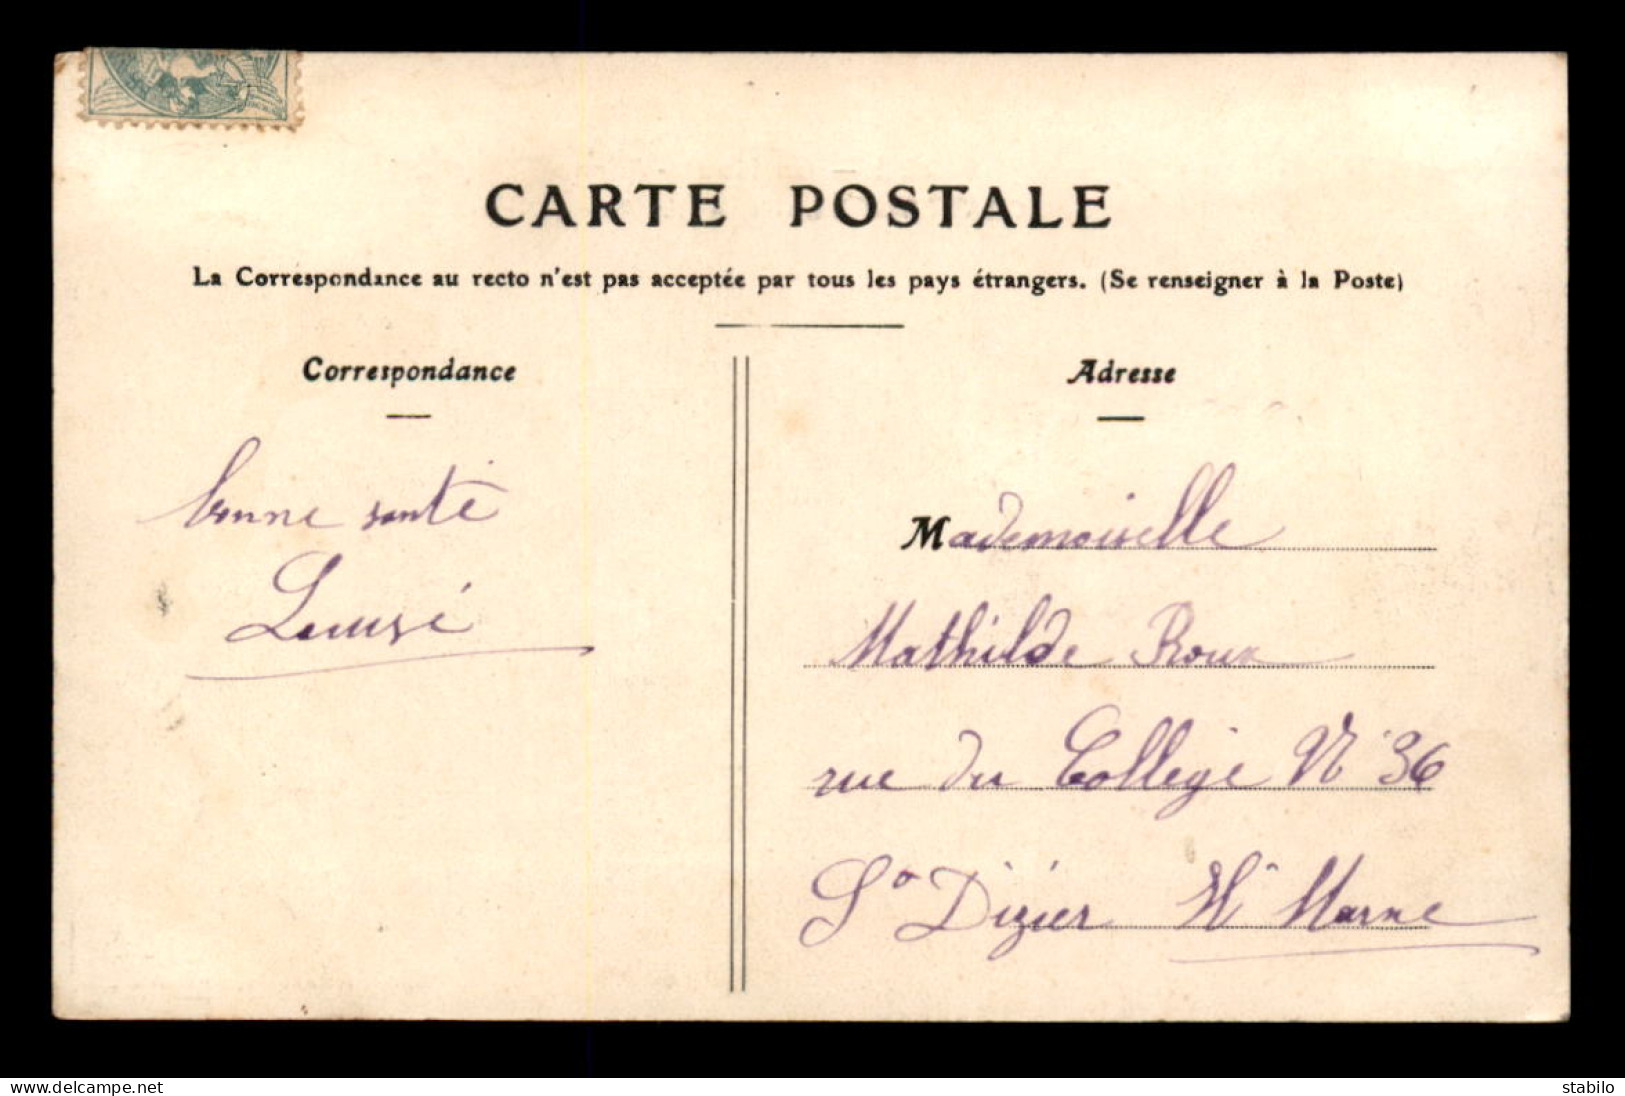 CARTE POSTALE
La Correspondance au recto n'est pas acceptée par tous les pays étrangers. (Se renseigner à la Poste)
Correspondance
bonne santé
Adresse
Mademoiselle
Mathilde Roux
rue du Collège N° 36
St Dizier Hte Marne
www.delcampe.net
stabilo